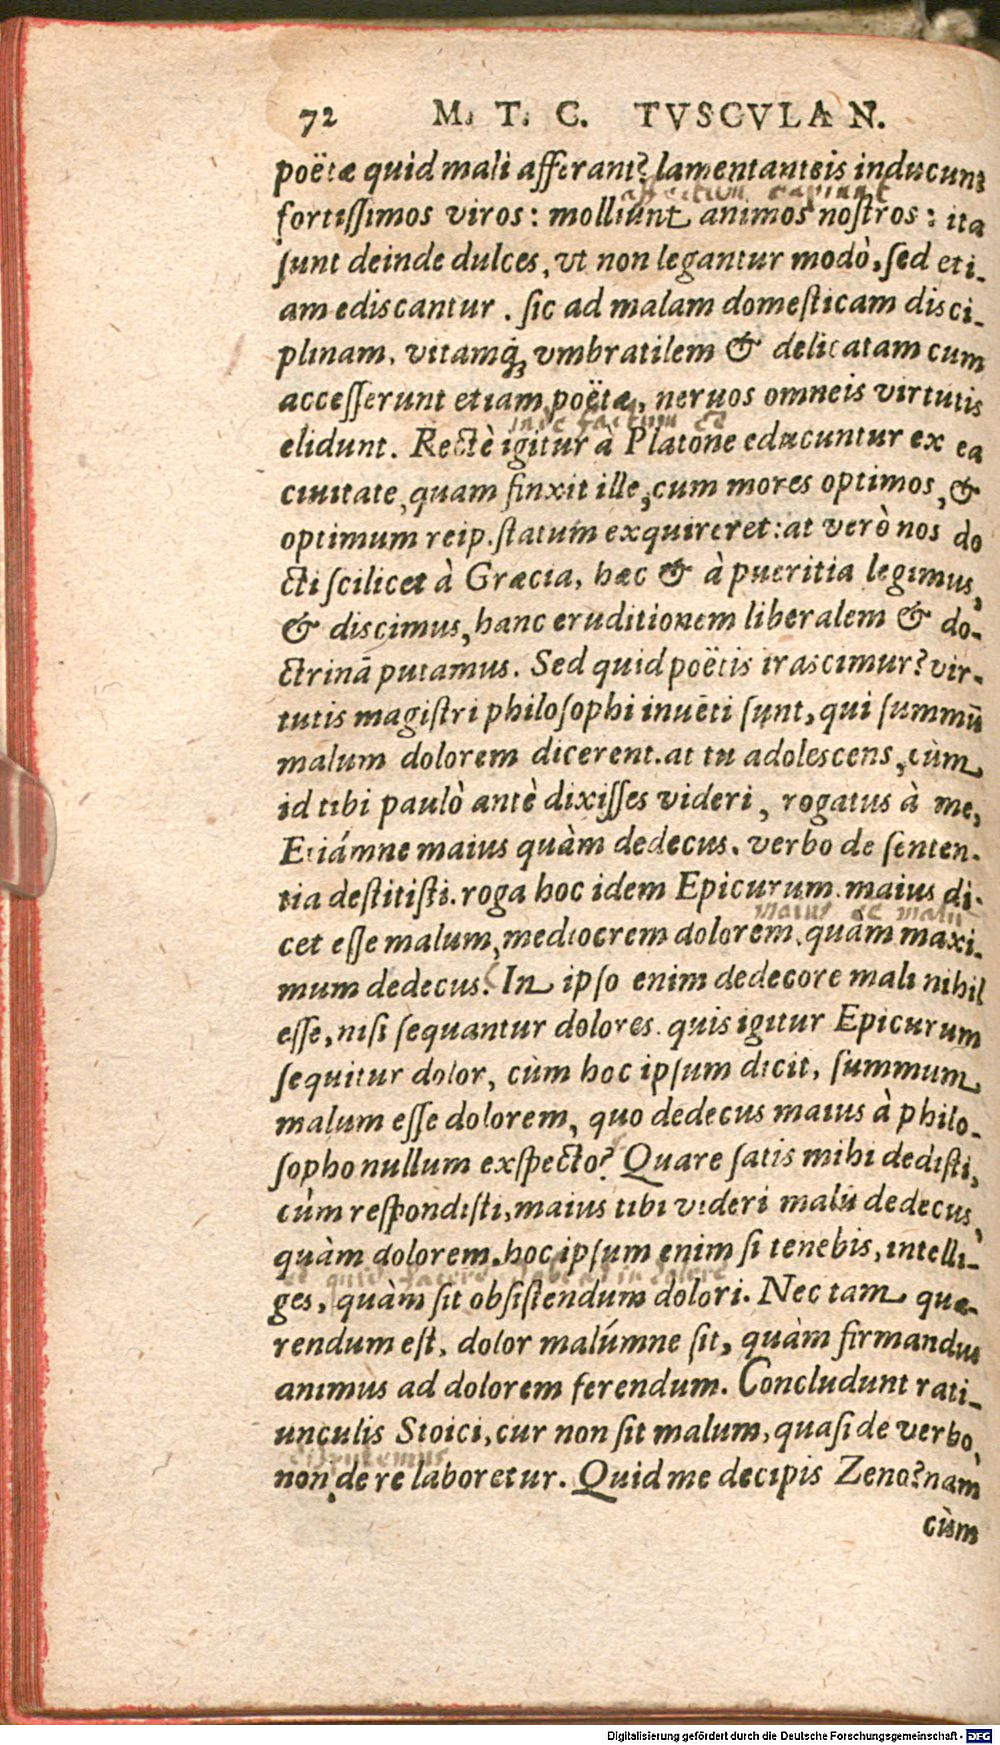 72 M. T. C. TVSCVLAN.
poëtæ quid mali afferant? lamentanteis inducunt
affectum rapiunt
fortiſſimos viros: molliunt animos noſtros: ita
ſunt deinde dulces, vt non legantur modò, ſed eti-
am ediscantur. ſic ad malam domeſticam disci-
plinam, vitamq́; vmbratilem & delicatam cum
acceſſerunt etiam poëtæ, neruos omneis virtutis
inde factum est
elidunt. Rectè igitur à Platone educuntur ex ea
ciuitate, quam finxit ille, cum mores optimos, &
optimum reip. ſtatum exquireret: at verò nos do
cti ſcilicet à Græcia, hæc & à pueritia legimus,
& discimus, hanc eruditionem liberalem & do-
ctrinā putamus. Sed quid poëtis irascimur? vir-
tutis magiſtri philoſophi inuēti ſunt, qui ſummū
malum dolorem dicerent. at tu adolescens, cùm
id tibi paulò antè dixiſſes videri, rogatus à me,
Etiámne maius quàm dedecus, verbo de ſenten-
tia deſtitiſti. roga hoc idem Epicurum. maius di-
maius ec malū
cet eſſe malum, mediocrem dolorem, quàm maxi-
mum dedecus. In ipſo enim dedecore mali nihil
eſſe, niſi ſequantur dolores. quis igitur Epicurum
ſequitur dolor, cùm hoc ipſum dicit, ſummum
malum eſſe dolorem, quo dedecus maius à philo-
ſopho nullum exſpecto? Quare ſatis mihi dediſti,
cùm reſpondiſti, maius tibi videri malū dedecus,
quàm dolorem. hoc ipſum enim ſi tenebis, intelli-
et quid facere in dolore
ges, quàm ſit obſiſtendum dolori. Nec tam quæ-
rendum eſt, dolor malúmne ſit, quàm firmandus
animus ad dolorem ferendum. Concludunt rati-
unculis Stoici, cur non ſit malum, quaſi de verbo,
non de re laboretur. Quid me decipis Zeno? nam
cùm
Digitalisierung gefördert durch die Deutsche Forschungsgemeinschaft - DFG